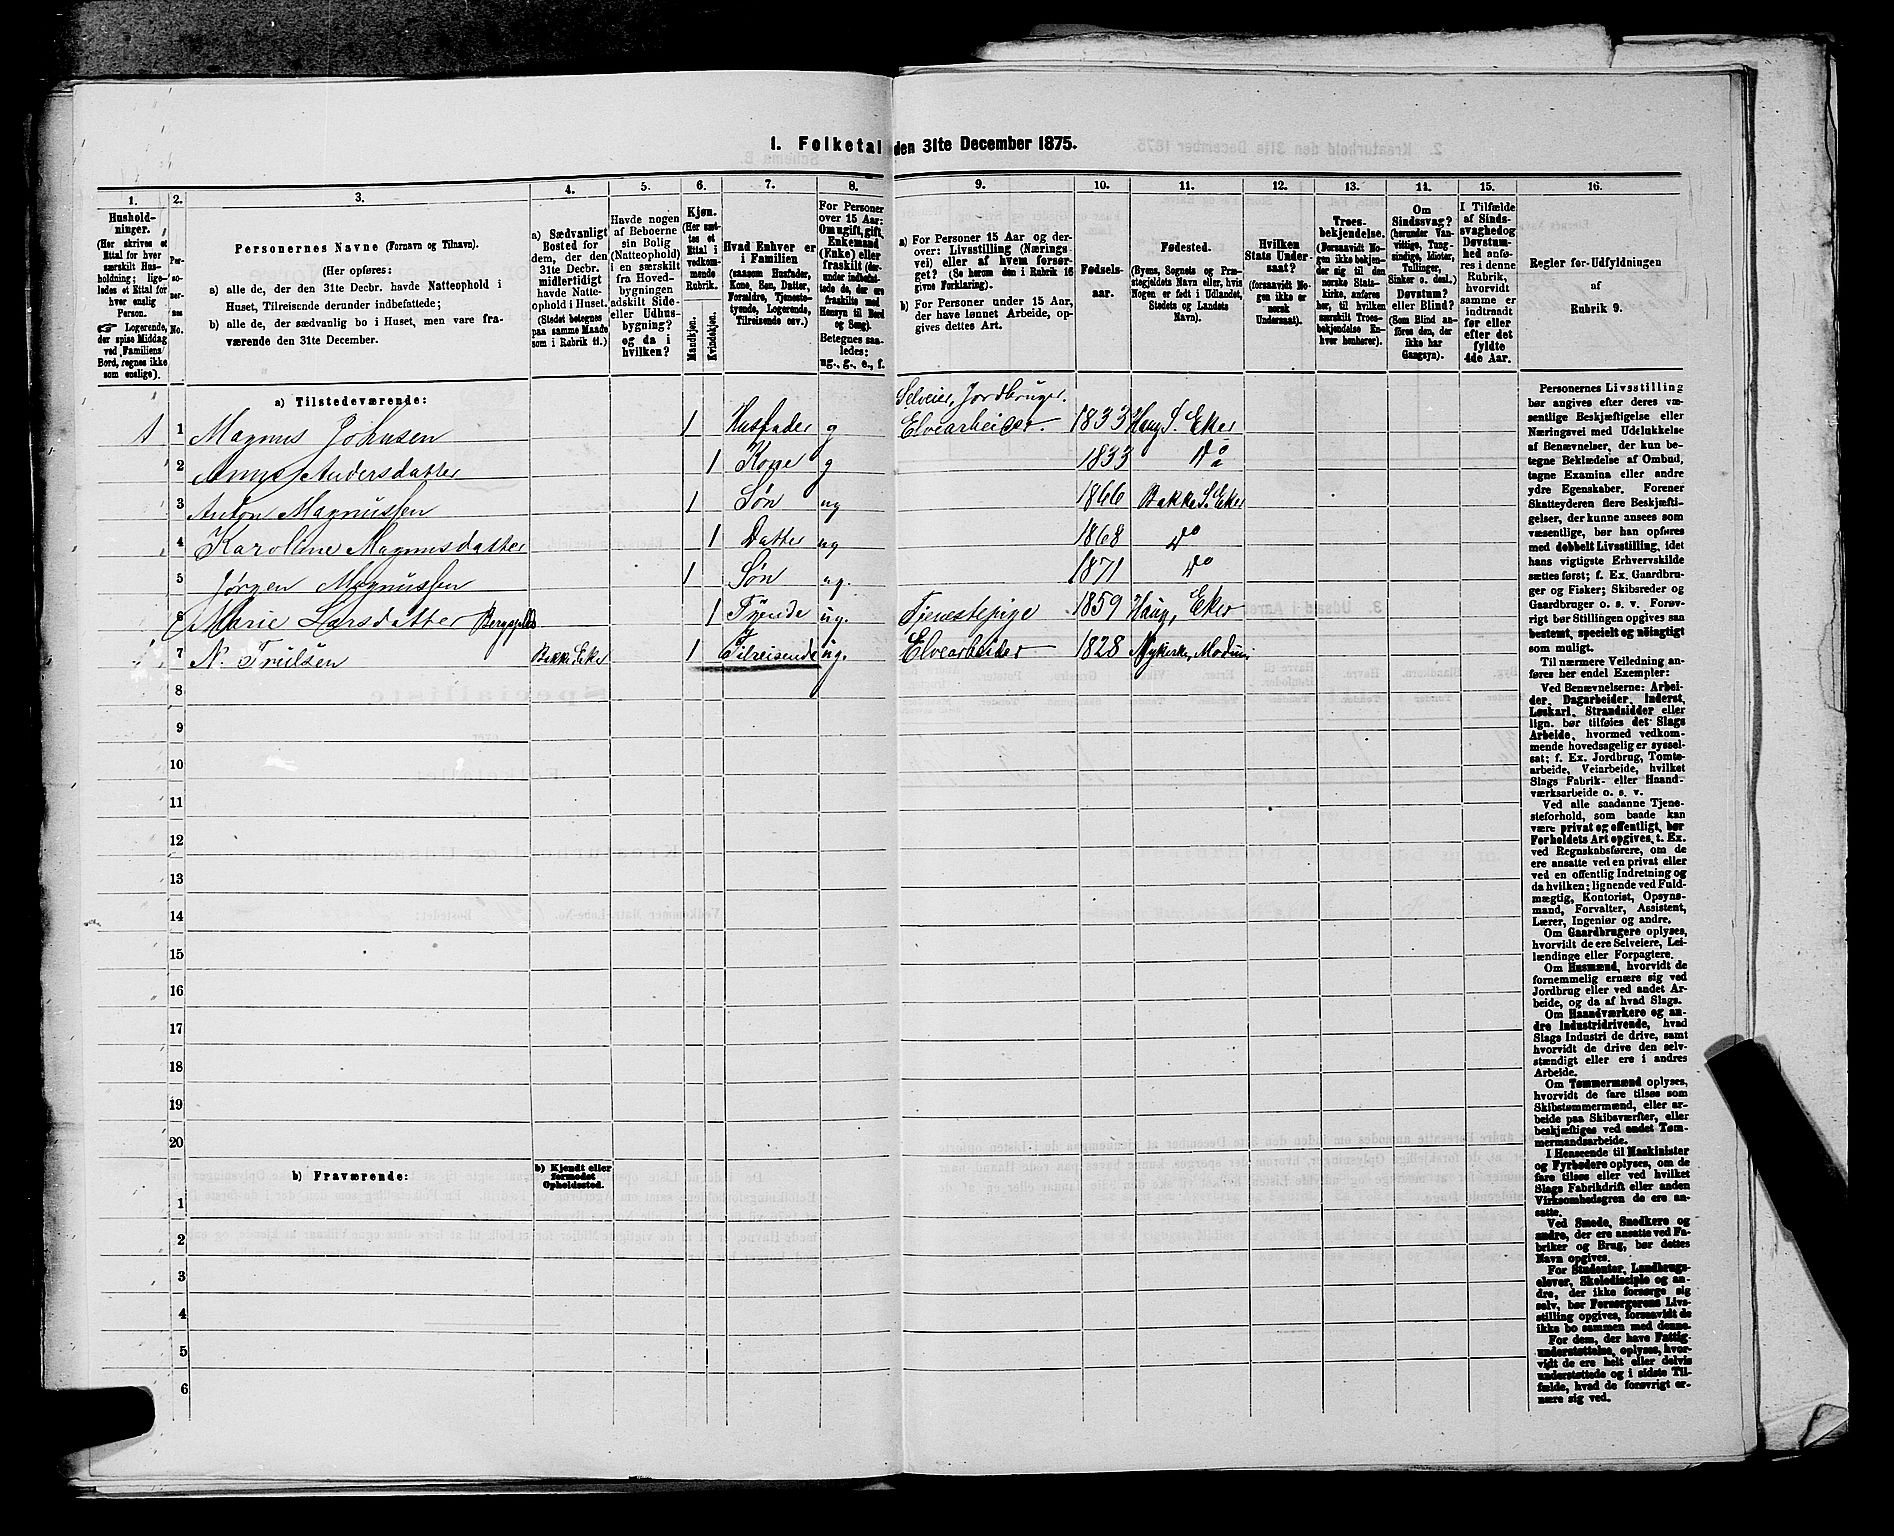 1. Folketal den 31te December 1875.
1.
2.
3.
4.
5.
6.
7.
8.
9.
10.
11.
12.
13.
14.
15.
16.
Hushold-
ninger.
(Her skrives et
Ettal for hver
særskilt Hus-
holdning; lige-
ledes et Ettal for
hver enslig
Person.
☞ Logerende,
der spise Middag
ved Familiens
Bord, regnes ikke
som enslige).
Per-
so-
ner-
nes
No.
Personernes Navne (Fornavn og Tilnavn).
(Her opføres:
a) alle de, der den 31te Decbr. havde Natteophold i
Huset, Tilreisende derunder indbefattede;
b) alle de, der sædvanlig bo i Huset, men vare fra-
værende den 31te December.
a) Sædvanligt
Bosted for
dem, der den
31te Decbr.
midlertidigt
havde Natte-
ophold i Huset.
(Stedet betegnes
paa samme Maade
som i Rubrik 11.)
Havde nogen
af Beboerne
sin Bolig
(Natteophold)
i en særskilt
fra Hoved-
bygningen
adskilt Side-
eller Udhus-
bygning?
og da i
hvilken?
Kjøn.
(Her sæt-
tes et
Ettal i
vedkom-
mende
Rubrik.
Mandkjøn.
Kvindekjøn.
Hvad Enhver er
i Familien
(saasom Husfader,
Kone, Søn, Datter,
Forældre, Tjeneste-
tyende, Logerende,
Tilreisende osv.)
For Personer
over 15 Aar:
Om ugift, gift,
Enkemand
(Enke) eller
fraskilt (der-
under indbefat-
tede de, der ere
fraskilte med
Hensyn til Bord
og Seng).
Betegnes saa-
ledes:
ug., g., e., f.
a) For Personer 15 Aar og der-
over: Livsstilling (Nærings-
vei) eller af hvem forsør-
get? (Se herom den i Rubrik 16
givne Forklaring).
b) For Personer under 15 Aar,
der have lønnet Arbeide, op-
gives dettes Art.
Fødsels-
aar.
Fødested.
(Byens, Sognets og Præ-
stegjeldets Navn eller, hvis
Nogen er født i Udlandet,
Stedets og Landets
Navn).
Hvilken
Stats Under-
saat?
(forsaavidt No-
gen ikke er
norsk
Undersaat).
Troes-
bekjendelse.
(Forsaavidt No-
gen ikke bekjen-
der sig til den
norske Stats-
kirke, anføres
her, til hvilken
særskilt Troes-
bekjendelse En-
hver henhører).
Om
Sindssvag?
(herunder Van-
vittige, Tung-
sindige, Idioter,
Tullinger,
Sinker o. desl.)
Døvstum?
eller Blind?
(Som Blind an-
føres den, der
ikke har
Gangsyn).
I Tilfælde
af Sinds-
svaghed og
Døvstum-
hed anfø-
res i denne
Rubrik,
hvorvidt
samme er
indtraadt
før eller
efter det
fyldte
4de Aar.
Regler for Udfyldningen
af
Rubrik 9.
a) Tilstedeværende:
Selveier, Jordbruger.
1 1 Magnus Johnsen 1 Husfader g Elvearbeider. 1833 Haug S. Eker
2 Anne Andersdatter 1 Kone g 1833 Do
3 Anton Magnussen 1 Søn ug 1866 Bakke S. Eker
4 Karoline Magnusdatter 1 Datter ug 1868 do
5 Jørgen Magnussen 1 Søn ug. 1871 do
6 Marie Larsdatter 1 Tyende ug. Tjenestepige 1859 Haug, Eker
7 N. Trulsen Bakke Eker 1 Tilreisende ug. Elvearbeider 1828 Nykirke, Modum
8
9
10
11
12
13
14
15
16
17
18
19
20
b) Fraværende:
b) Kjendt eller
formodet
Opholdssted.
1
2
3
4
5
6
Personernes Livsstilling
bør angives efter deres væ-
sentlige Beskjæftigelse eller
Næringsvei med Udelukkelse
af Benævnelser, der kun be-
tegne Beklædelse af Ombud,
tagne Examina eller andre
ydre Egenskaber. Forener
Skatteyderen flere Beskjæfti-
gelser, der kunne ansees som
væsentlige, bør han opføres
med dobbelt Livsstilling, idet
hans vigtigste Erhvervskilde
sættes først; f. Ex. Gaardbru-
ger og Fisker; Skibsreder og
Gaardbruger o. s. v. Forøv-
rigt bør Stillingen opgives saa
bestemt, specielt og nöiagtigt
som muligt.
Til nærmere Veiledning an-
føres her endel Exempler:
Ved Benævnelserne: Arbei-
der, Dagarbeider, Inderst,
Løskarl, Strandsidder eller
lign. bør tilføies det Slags
Arbeide, hvormed vedkom-
mende hovedsagelig er syssel-
sat; f. Ex. Jordbrug, Tomte-
arbeide, Veiarbeide, hvilket
Slags Fabrik- eller Haand-
værksarbeide o. s. v.
Ved alle saadanne Tjene-
steforhold, som baade kan
være privat og offentligt, bør
Forholdets Art opgives, t. Ex.
ved Regnskabsførere, om de
ere ansatte ved en privat eller
ved en offentlig Indretning og
da hvilken; lignende ved Fuld-
mægtig, Kontorist, Opsyns-
mand, Forvalter, Assistent,
Lærer, Ingeniør og andre.
Om Gaardbrugere oplyses,
hvorvidt de ere Selveiere, Lei-
lændinge eller Forpagtere.
Om Husmænd, hvorvidt de
fornemmelig ernære sig ved
Jordbrug eller ved andet Ar-
beide, og da af hvad Slags.
Om Haandværkere og an-
dre industridrivende, hvad
Slags Industri de drive, samt
hvorvidt de drive den selv-
stændigt eller ere i andres
Arbeide.
Om Tømmermænd oplyses,
hvorvidt de fare tilsøs som
Skibstømmermænd, eller ar-
beide paa Skibsværfter, eller
beskjæftiges ved andet Tøm-
mermandsarbeide.
I Henseende til Maskinister
og Fyrbødere oplyses, om de
fare tilsøs eller ved hvilket
Slags Fabrikdrift eller anden
Virksomhedsgren de ere an-
satte.
Ved Smede, Snedkere og
andre, der ere ansatte ved Fa-
briker og Brug, bør dettes
Navn opgives.
For Studenter, Landbrugs-
elever, Skoledisciple og an-
dre, der ikke forsørge sig
selv, bør Forsørgerens Livs-
stilling opgives, forsaavidt de
ikke bo sammen med denne.
For dem, der have Fattig-
understøttelse, oplyses, hvor-
vidt de ere helt eller delvis
understøttede og i sidste Til-
fælde, hvad de forøvrigt er-
nære sig ved.